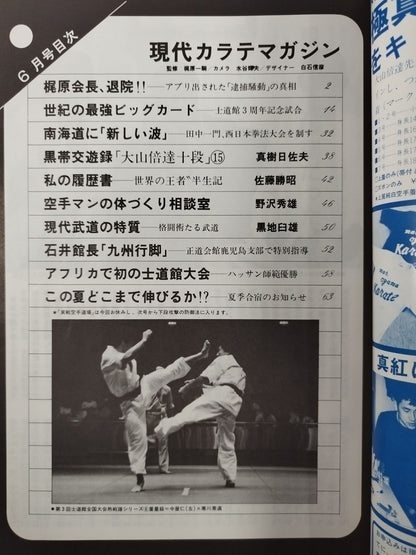 6月号目次
現代カラテマガジン
監修 梶原一騎/カメラ 水谷輝夫/デザイナー 白石信雄
梶原会長、退院!!——アブリ出された「逮捕騒動」の真相 2
世紀の最強ビッグカード——士道館3周年記念試合 14
南海道に「新しい波」——田中一門、西日本拳法大会を制す 32
黒帯交遊録「大山倍達十段」⑮ 真樹日佐夫 38
私の履歴書——世界の王者〝半生記 佐藤勝昭 42
空手マンの体づくり相談室 野沢秀雄 46
現代武道の特質——格闘術たる武道 黒地白雄 50
石井館長「九州行脚」——正道会館鹿児島支部で特別指導 52
アフリカで初の士道館大会——ハッサン師範優勝 58
この夏どこまで伸びるか!?——夏季合宿のお知らせ 63
*「実戦空手道場」は今回お休みし、次号から下段攻撃の防御法に入ります。
●第3回士道館全国大会熱戦譜シリーズ
真
極
をキ
大山倍達先
Karate
mas oyama
Karate
真紅に